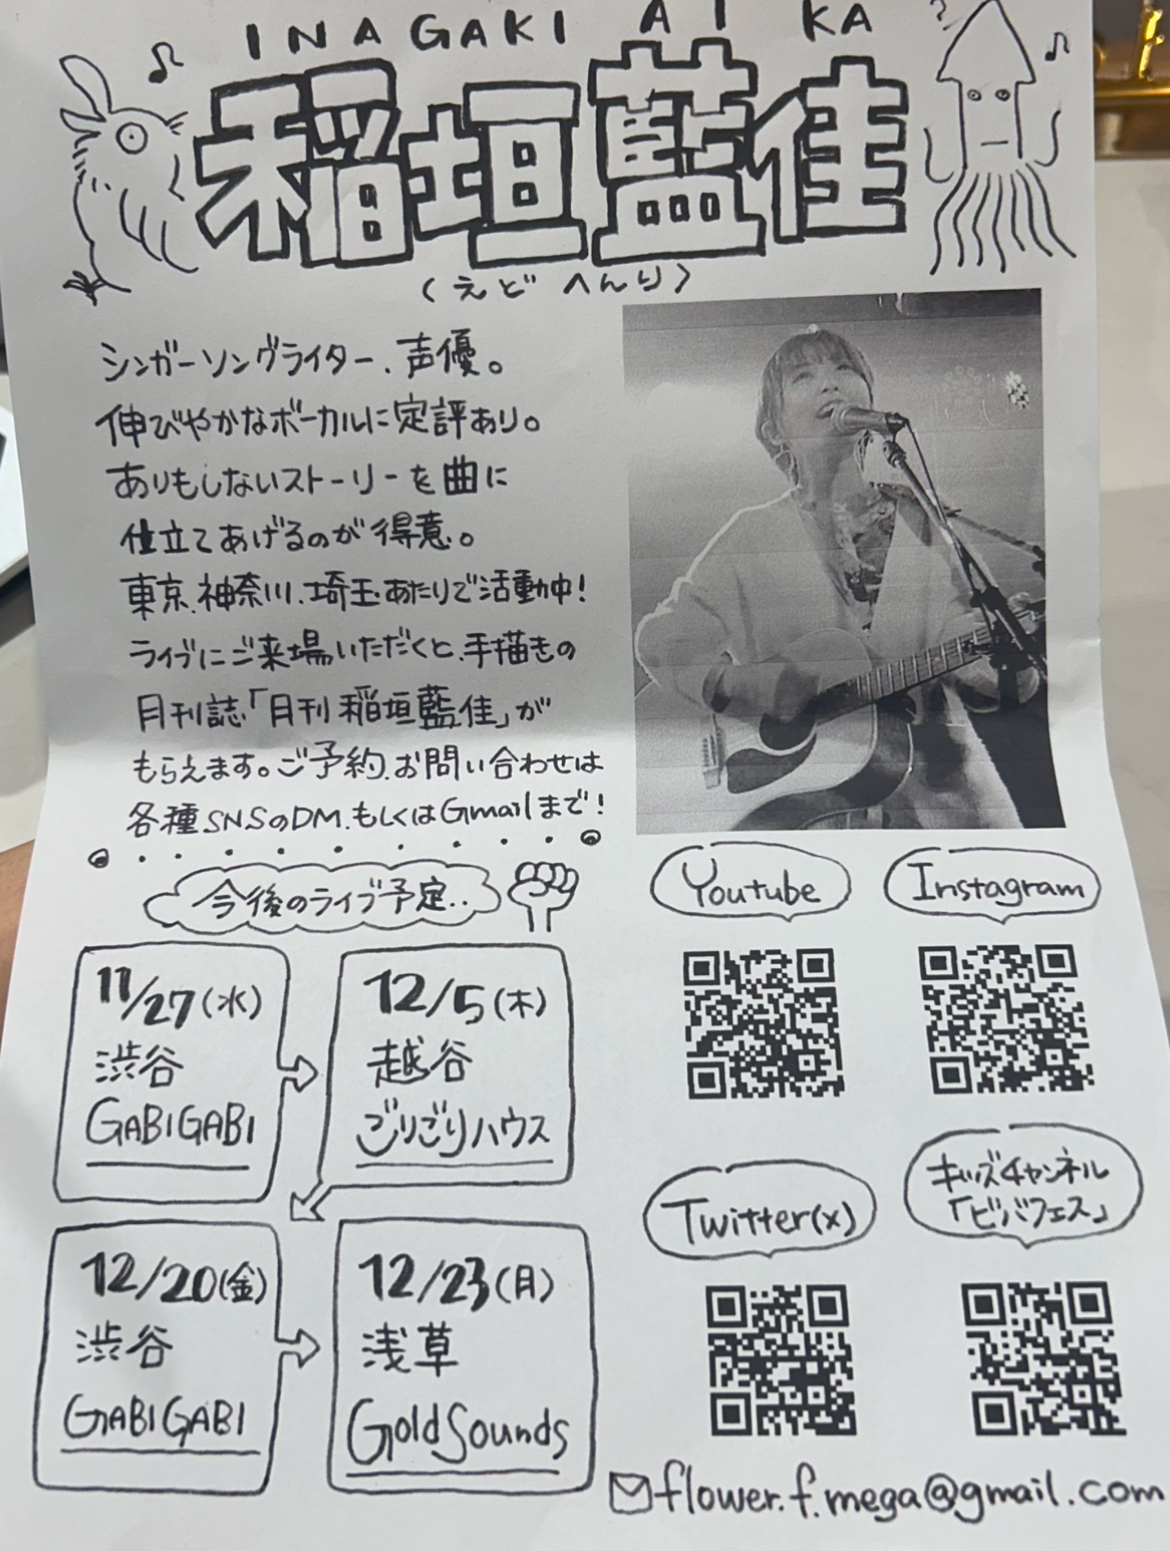 INAGAKI AI KA
稲垣藍佳
(えど へんり)
シンガーソングライター、声優。
伸びやかなボーカルに定評あり。
ありもしないストーリーを曲に
仕立てあげるのが得意。
東京、神奈川、埼玉あたりで活動中!
ライブにご来場いただくと、手描きの
月刊誌「月刊 稲垣藍佳」が
もらえます。ご予約、お問い合わせは
各種SNSのDM、もしくはGmailまで!
今後のライブ予定..
11/27(水)
渋谷
GABIGABI
12/5(木)
越谷
ごりごりハウス
12/20(金)
渋谷
GABIGABI
12/23(月)
浅草
GoldSounds
Youtube
Instagram
Twitter(x)
キッズチャンネル
「ビバフェス」
flower.f.mega@gmail.com